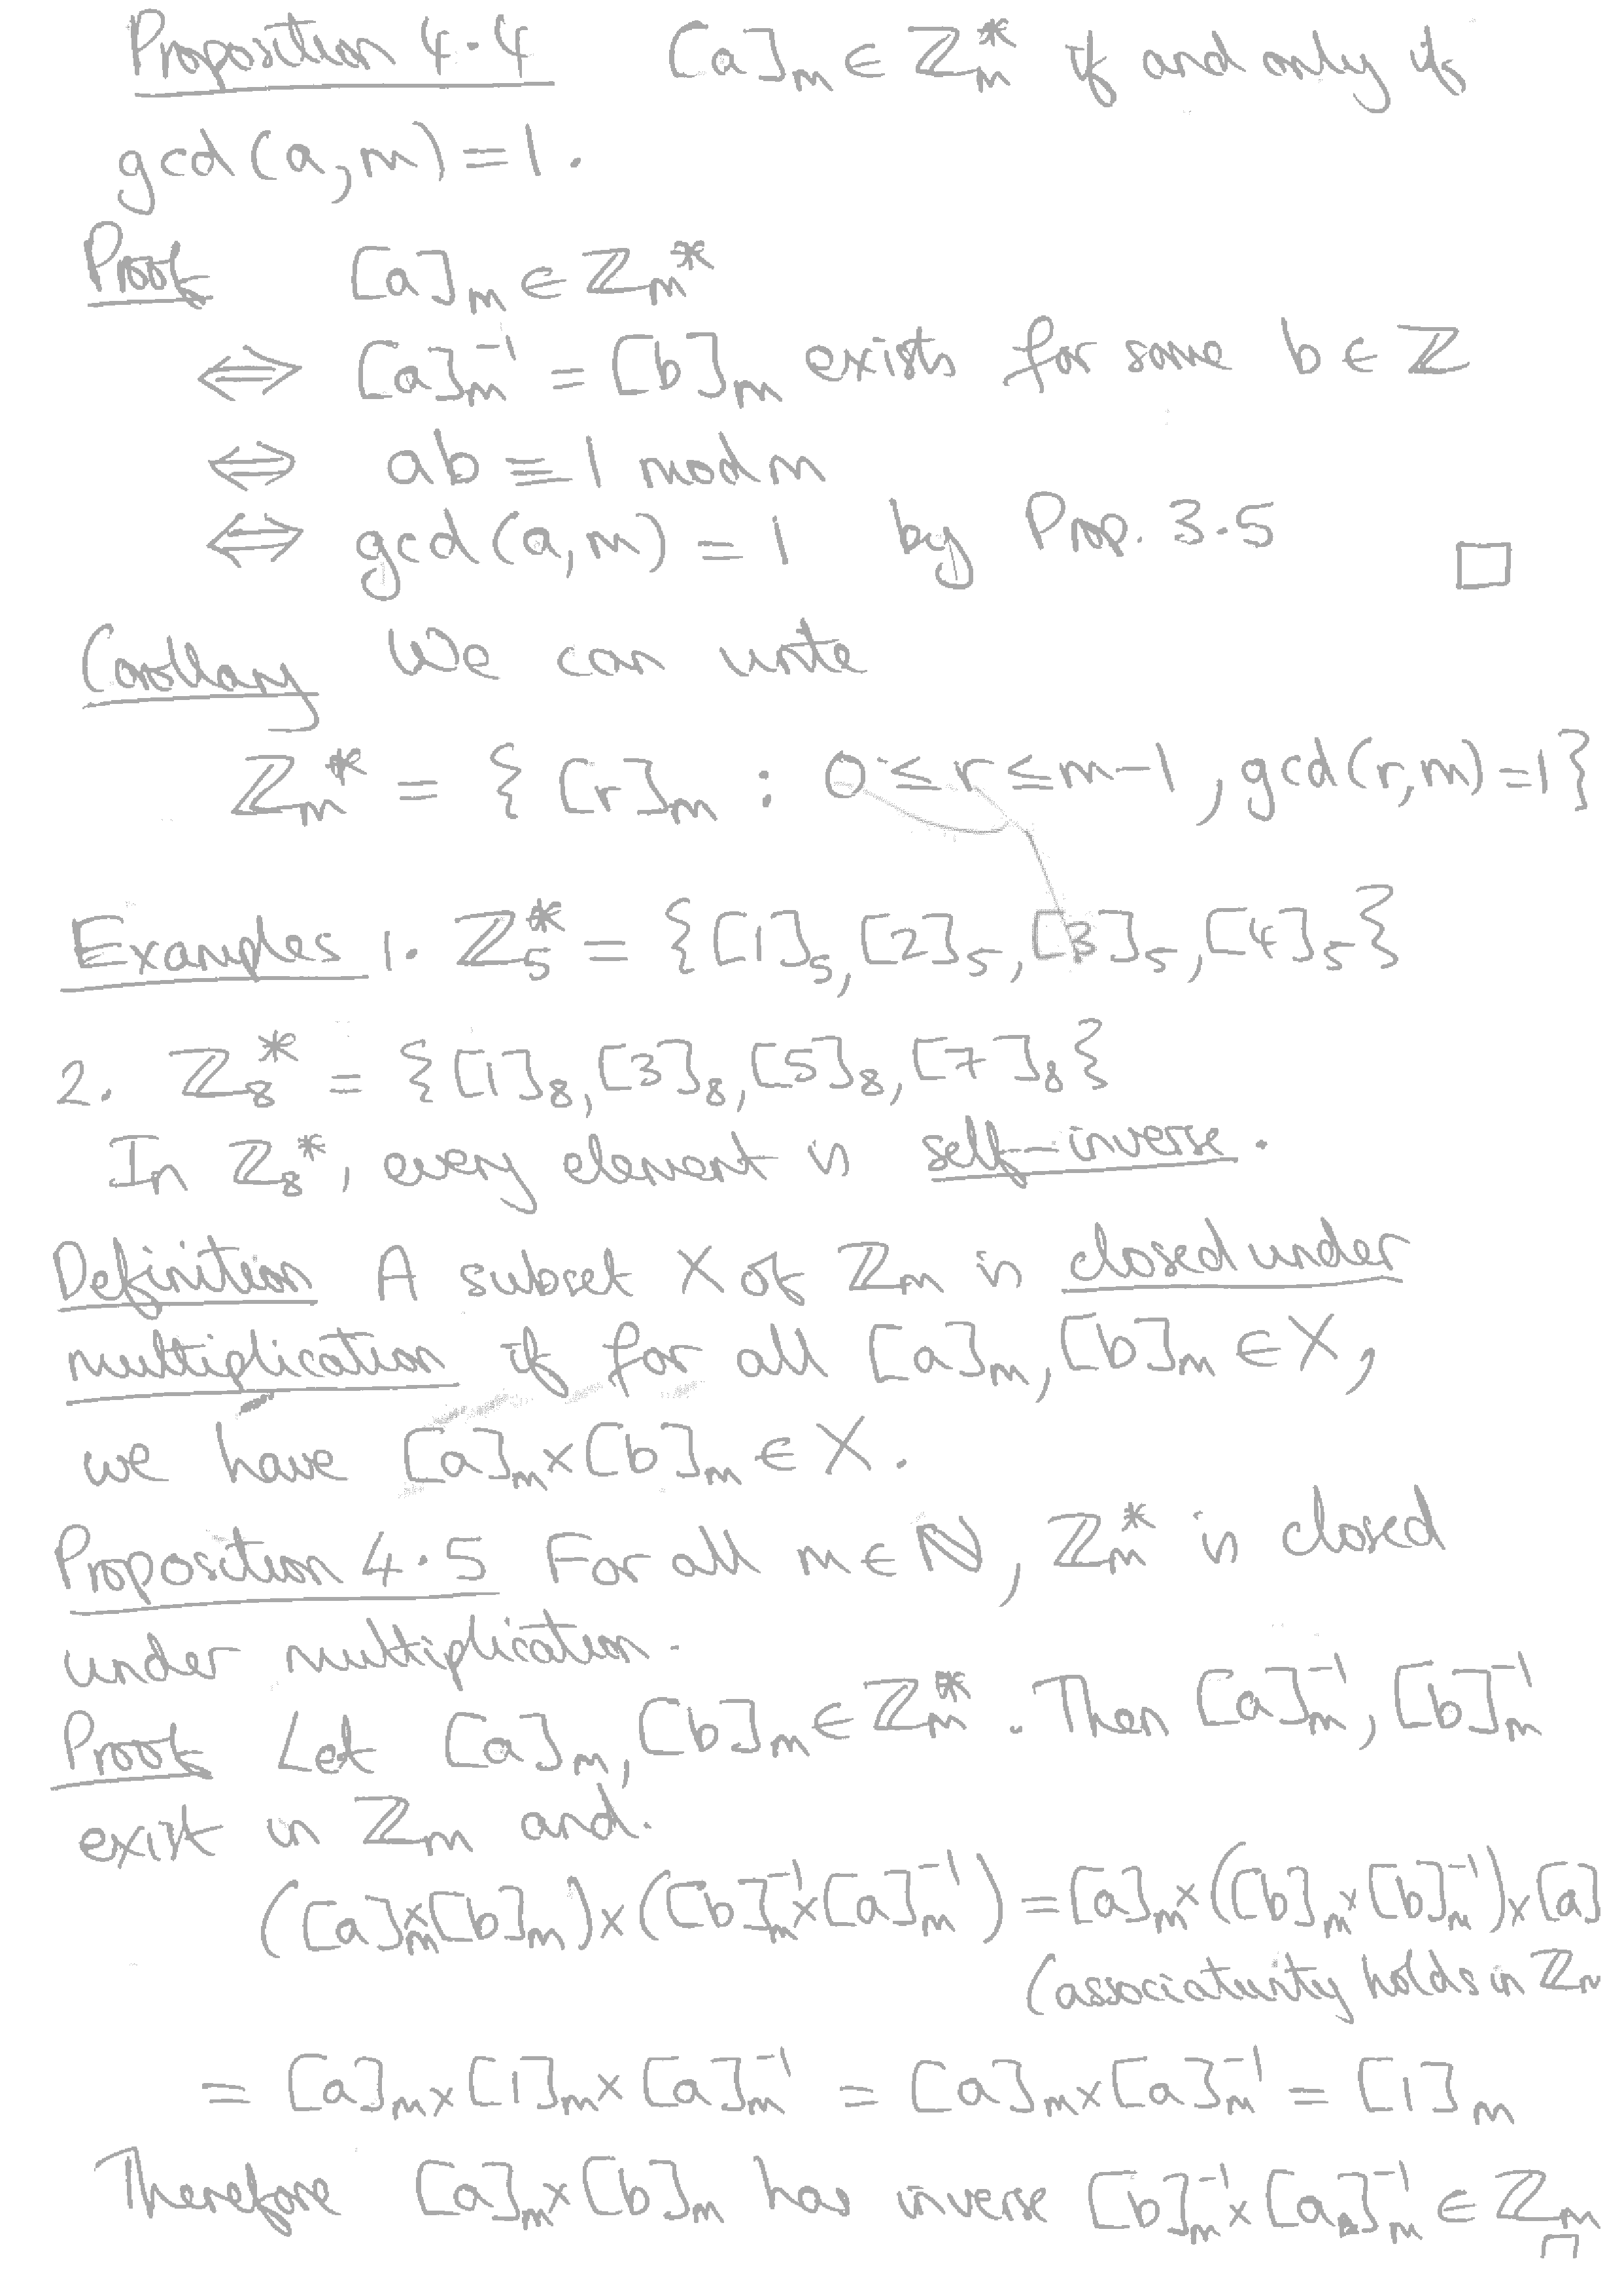 Proposition 4.4 [a]ₘ ∈ ℤₘ* if and only if
gcd(a,m) = 1.
Proof [a]ₘ ∈ ℤₘ*
⟺ [a]ₘ⁻¹ = [b]ₘ exists for some b ∈ ℤ
⟺ ab ≡ 1 mod m
⟺ gcd(a,m) = 1 by Prop. 3.5 □
Corollary We can write
ℤₘ* = { [r]ₘ : 0 ≤ r ≤ m-1, gcd(r,m) = 1}
Examples 1. ℤ₅* = {[1]₅, [2]₅, [3]₅, [4]₅}
2. ℤ₈* = {[1]₈, [3]₈, [5]₈, [7]₈}
In ℤ₈*, every element is self-inverse.
Definition A subset X of ℤₘ is closed under
multiplication if for all [a]ₘ, [b]ₘ ∈ X,
we have [a]ₘ × [b]ₘ ∈ X.
Proposition 4.5 For all m ∈ ℕ, ℤₘ* is closed
under multiplication.
Proof Let [a]ₘ, [b]ₘ ∈ ℤₘ*. Then [a]ₘ⁻¹, [b]ₘ⁻¹
exist in ℤₘ and.
([a]ₘ × [b]ₘ) × ([b]ₘ⁻¹ × [a]ₘ⁻¹) = [a]ₘ × ([b]ₘ × [b]ₘ⁻¹) × [a]
(associativity holds in ℤₘ
= [a]ₘ × [1]ₘ × [a]ₘ⁻¹ = [a]ₘ × [a]ₘ⁻¹ = [1]ₘ
Therefore [a]ₘ × [b]ₘ has inverse [b]ₘ⁻¹ × [a]ₘ⁻¹ ∈ ℤₘ
□